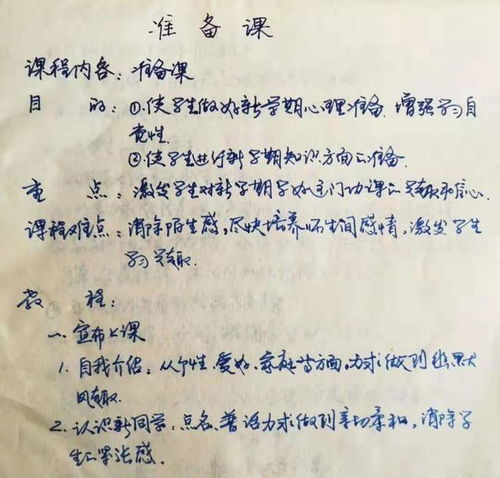 准备课
课程内容：准备课
目 的：①.使学生做好新学期心理准备.增强学习自
觉性.
②.使学生进行新学期知识方面的准备.
重 点：激发学生对新学期学好这门功课的兴趣和信心.
课程难点：消除陌生感,尽快培养师生间感情,激发学生
学习兴趣.
教 程：
一.宣布上课
1.自我介绍：从个性、爱好、家庭等方面,力求做到幽默大
风趣.
2.认识新同学：点名、普话力求做到亲切柔和,消除学
生的紧张感.